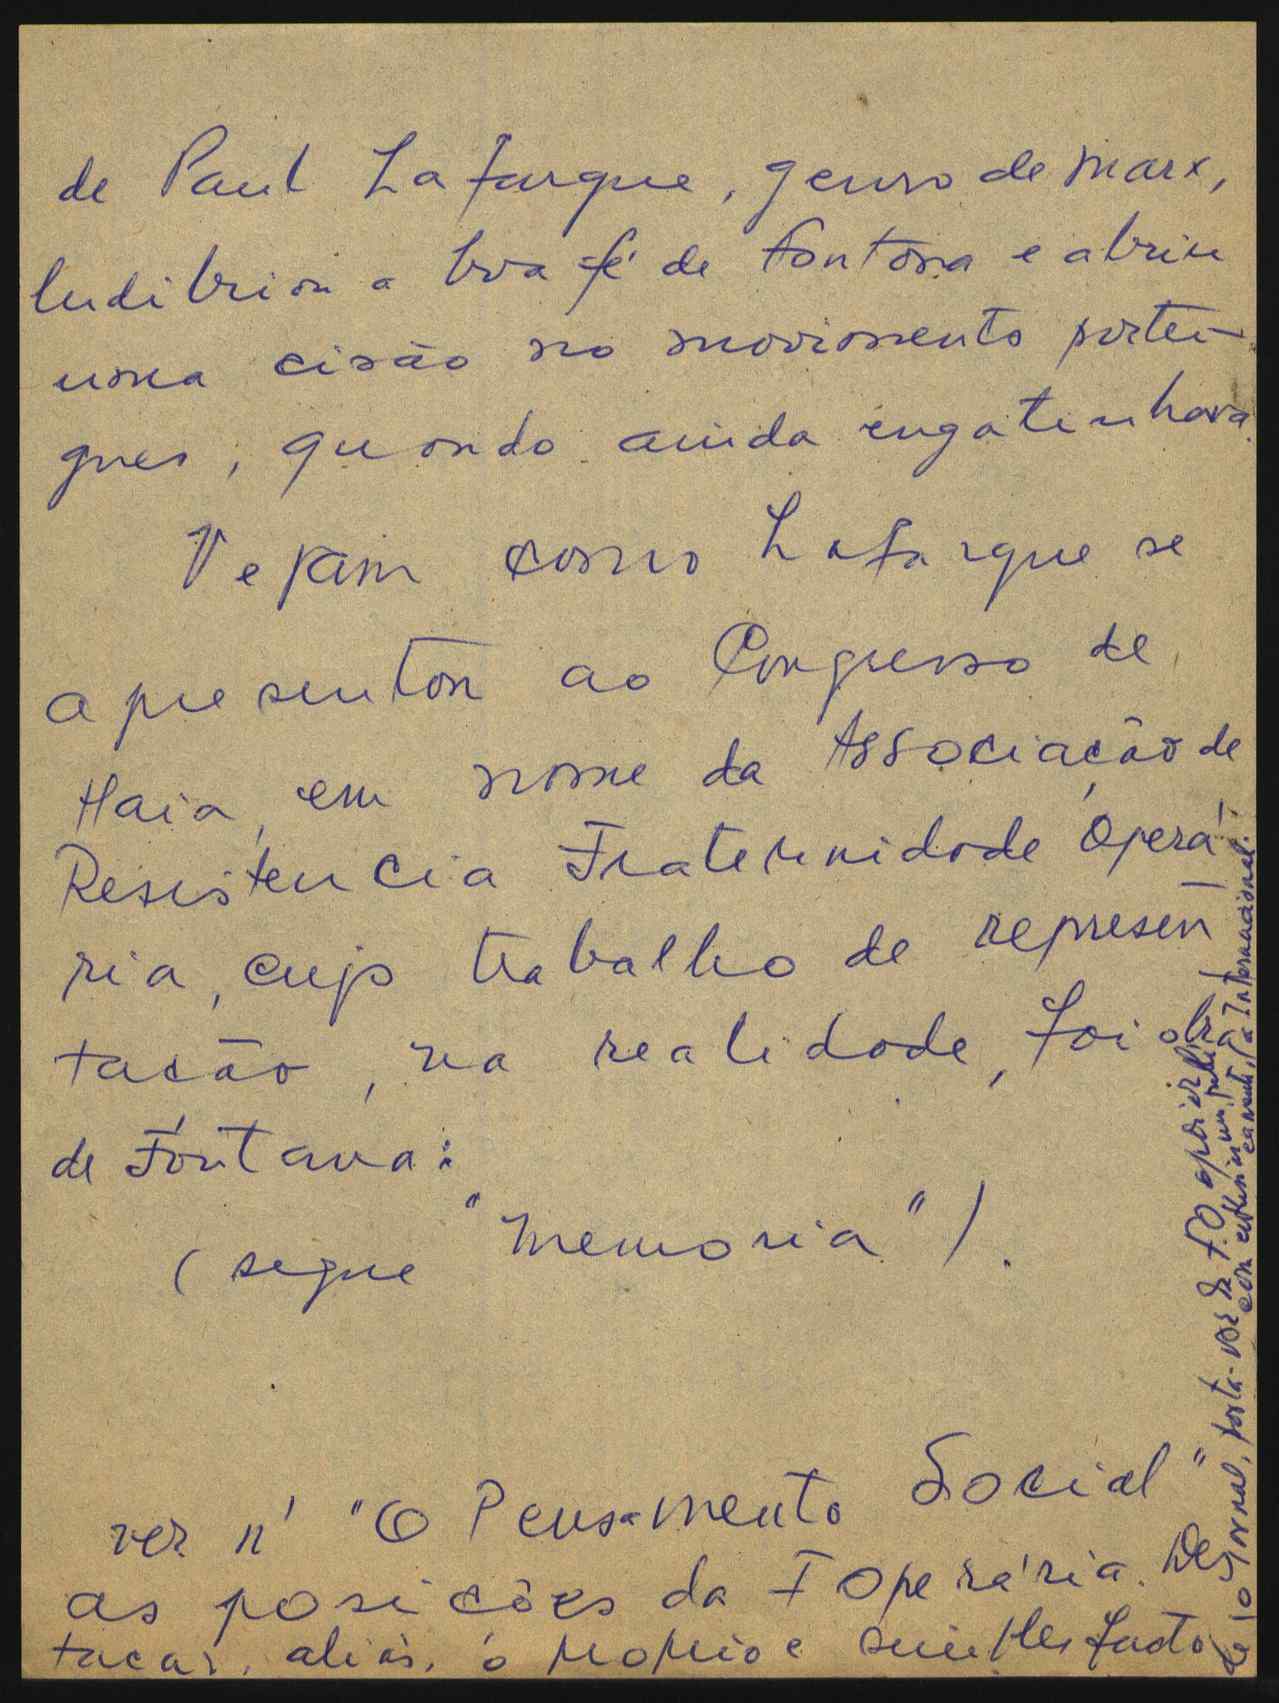 de Paul Lafargue, genro de Marx,
ludibriou a boa-fé de Fontana e abriu
uma cisão no movimento portu-
gues, quando ainda engatinhava.
Vejam como Lafargue se
apresentou ao Congresso de
Haia, em nome da Associação de
Resistencia Fraternidade Operá-
ria, cujo trabalho de represen-
tação, na realidade, foi obra
de Fontana:
(segue "Memoria").
ver n' "O Pensamento Social"
as posições da F Operária. Des
tacar, aliás, o proprio e simples facto
de o jornal, porta-voz da F.O. apoiar
públicamente, a Internacional.